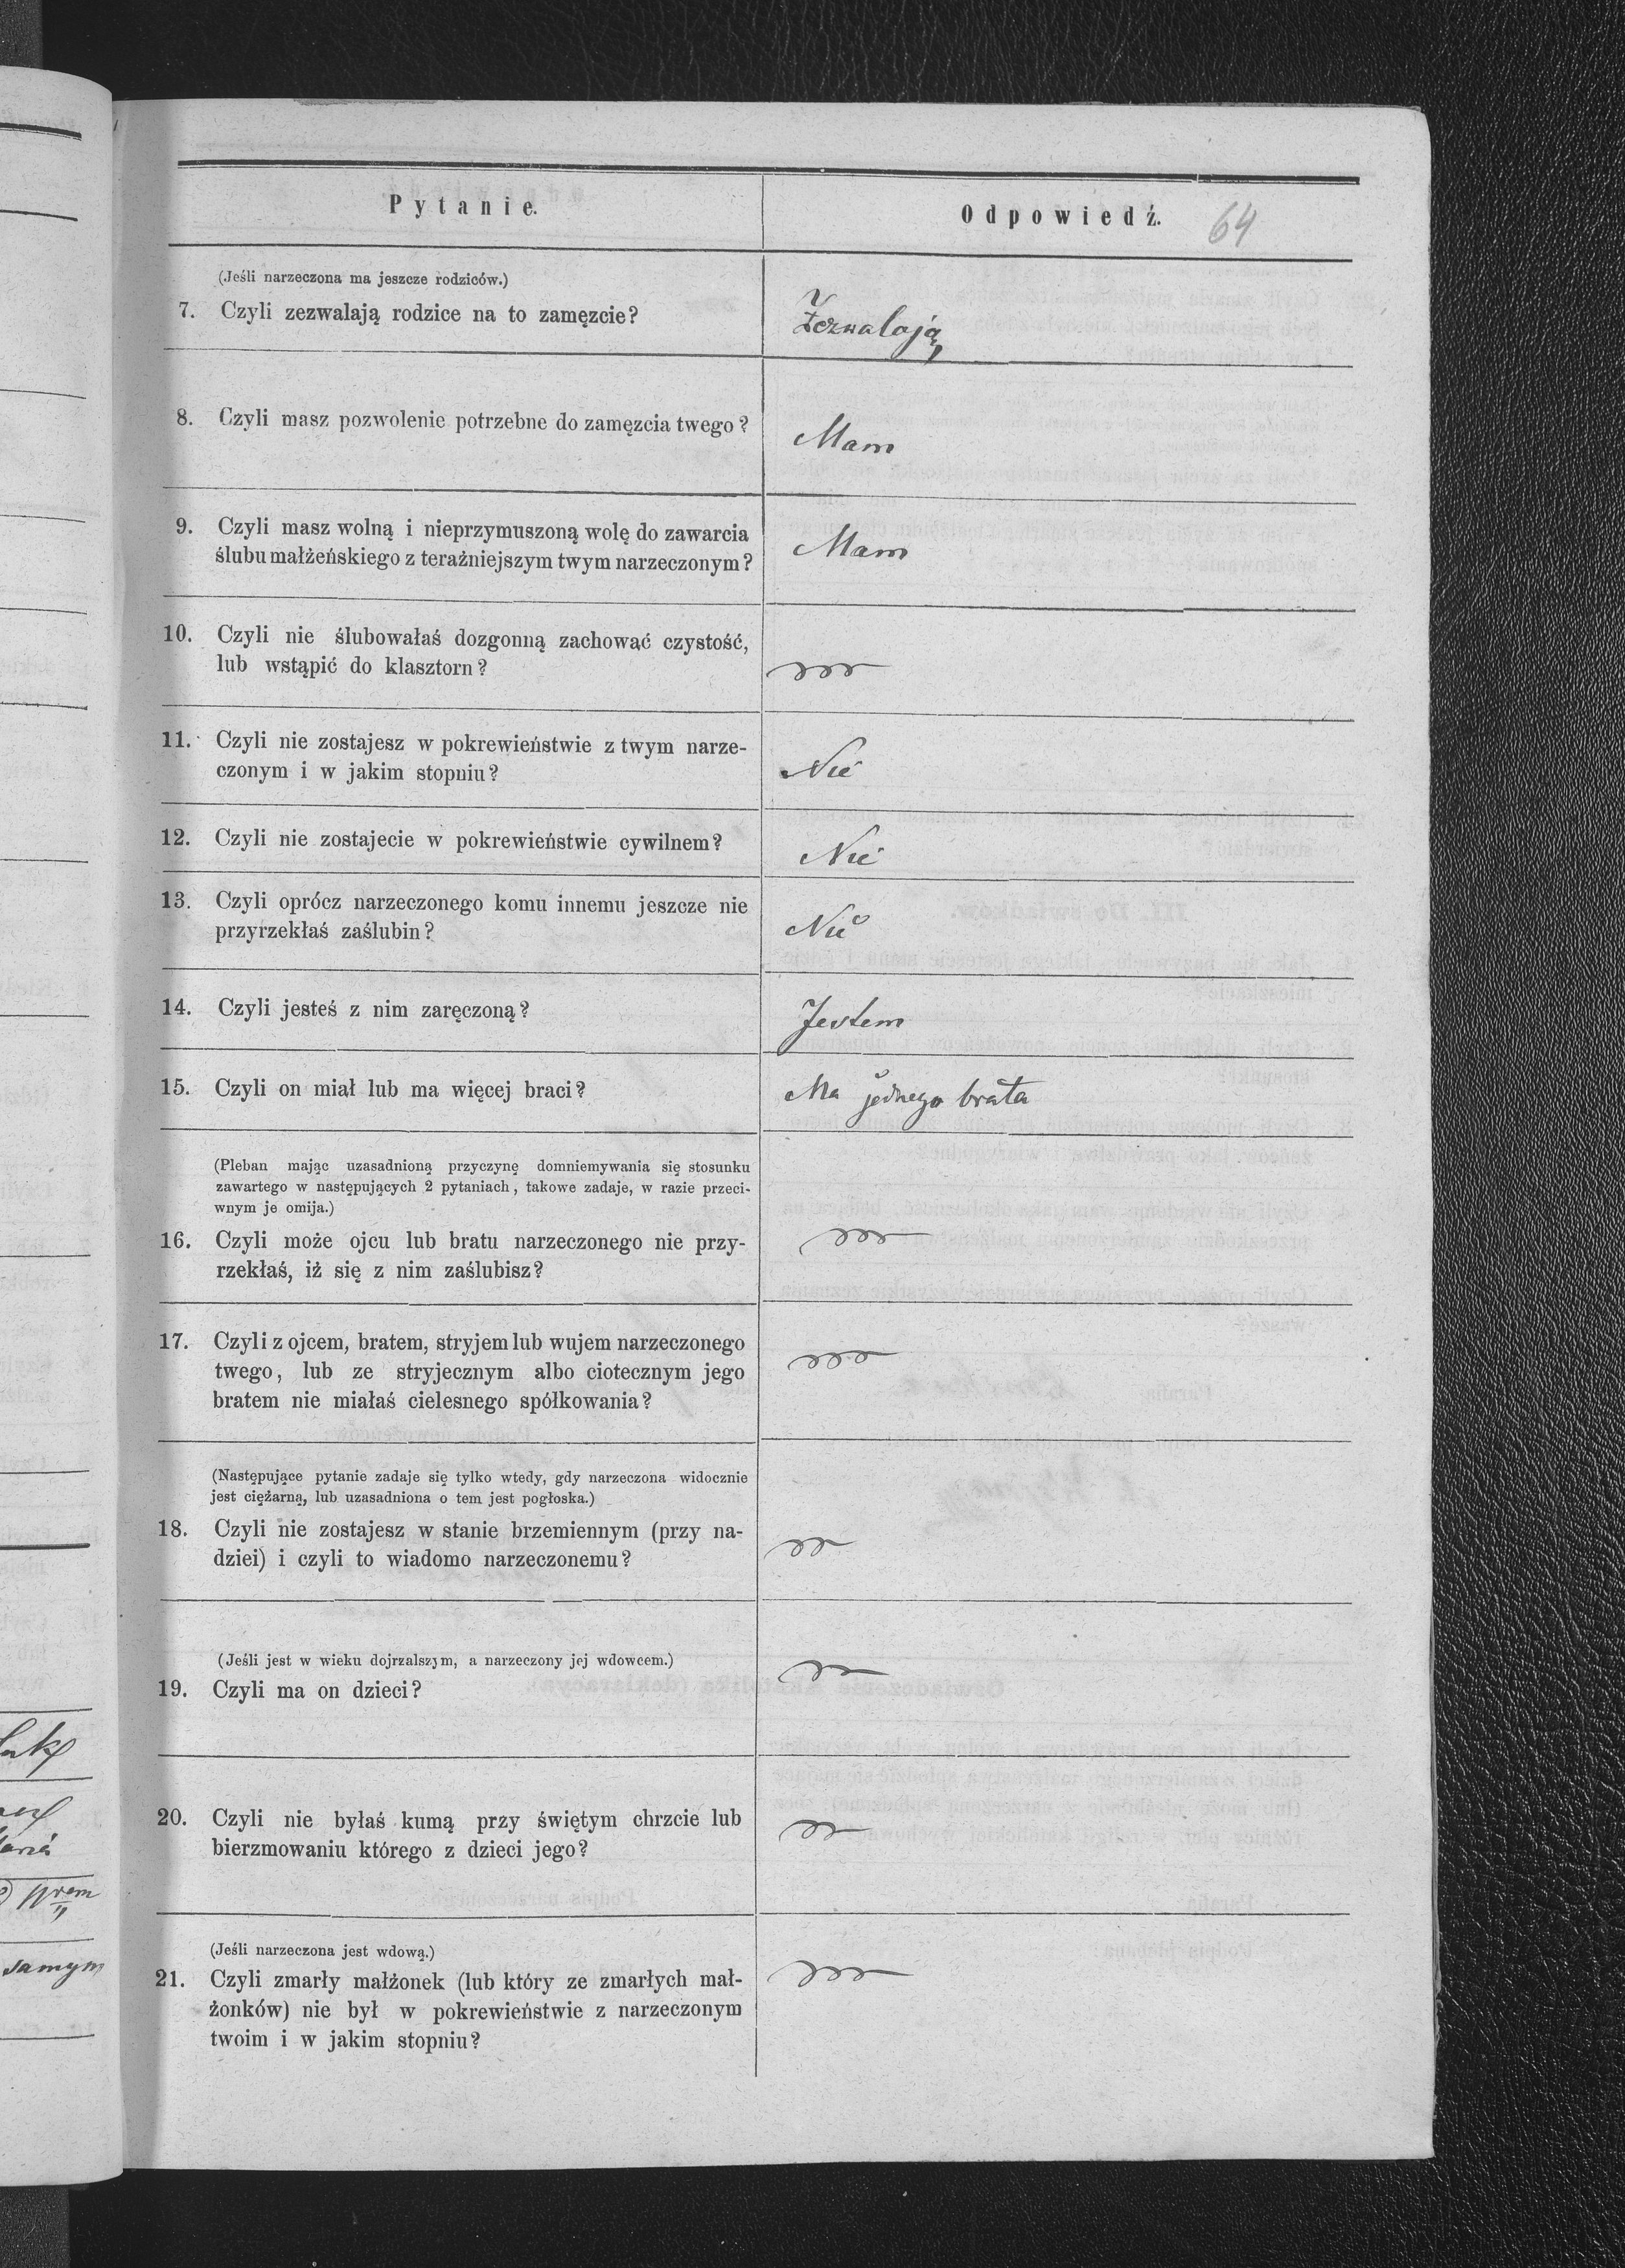 Pytanie.
Odpowiedź.
64
(Jeśli narzeczona ma jeszcze rodziców.)
7. Czyli zezwalają rodzice na to zamęzcie?
Zezwalają
8. Czyli masz pozwolenie potrzebne do zamęzcia twego?
Mam
9. Czyli masz wolną i nieprzymuszoną wolę do zawarcia
ślubu małżeńskiego z teraźniejszym twym narzeczonym?
Mam
10. Czyli nie ślubowałaś dozgonną zachować czystość,
lub wstąpić do klasztorn?
11. Czyli nie zostajesz w pokrewieństwie z twym narze-
czonym i w jakim stopniu?
Nie
12. Czyli nie zostajecie w pokrewieństwie cywilnem?
Nie
13. Czyli oprócz narzeczonego komu innemu jeszcze nie
przyrzekłaś zaślubin?
Nie
14. Czyli jesteś z nim zaręczoną?
Jestem
15. Czyli on miał lub ma więcej braci?
Ma jednego brata
(Pleban mając uzasadnioną przyczynę domniemywania się stosunku
zawartego w następujących 2 pytaniach, takowe zadaje, w razie przeci-
wnym je omija.)
16. Czyli może ojcu lub bratu narzeczonego nie przy-
rzekłaś, iż się z nim zaślubisz?
17. Czyli z ojcem, bratem, stryjem lub wujem narzeczonego
twego, lub ze stryjecznym albo ciotecznym jego
bratem nie miałaś cielesnego spółkowania?
(Następujące pytanie zadaje się tylko wtedy, gdy narzeczona widocznie
jest ciężarną, lub uzasadniona o tem jest pogłoska.)
18. Czyli nie zostajesz w stanie brzemiennym (przy na-
dziei) i czyli to wiadomo narzeczonemu?
(Jeśli jest w wieku dojrzalszym, a narzeczony jej wdowcem.)
19. Czyli ma on dzieci?
20. Czyli nie byłaś kumą przy świętym chrzcie lub
bierzmowaniu którego z dzieci jego?
(Jeśli narzeczona jest wdową.)
21. Czyli zmarły małżonek (lub który ze zmarłych mał-
żonków) nie był w pokrewieństwie z narzeczonym
twoim i w jakim stopniu?
samym